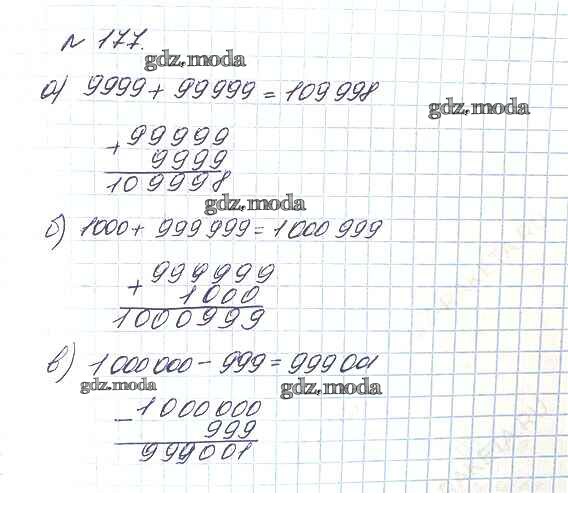 № 177.
gdz.moda
а) 9999 + 99999 = 109 998
gdz.moda
+ 99999
9999
109998
gdz.moda
б) 1000 + 999 999 = 1 000 999
+ 999999
1000
1000999
в) 1 000 000 - 999 = 999 001
gdz.moda
gdz.moda
- 1000000
999
999001